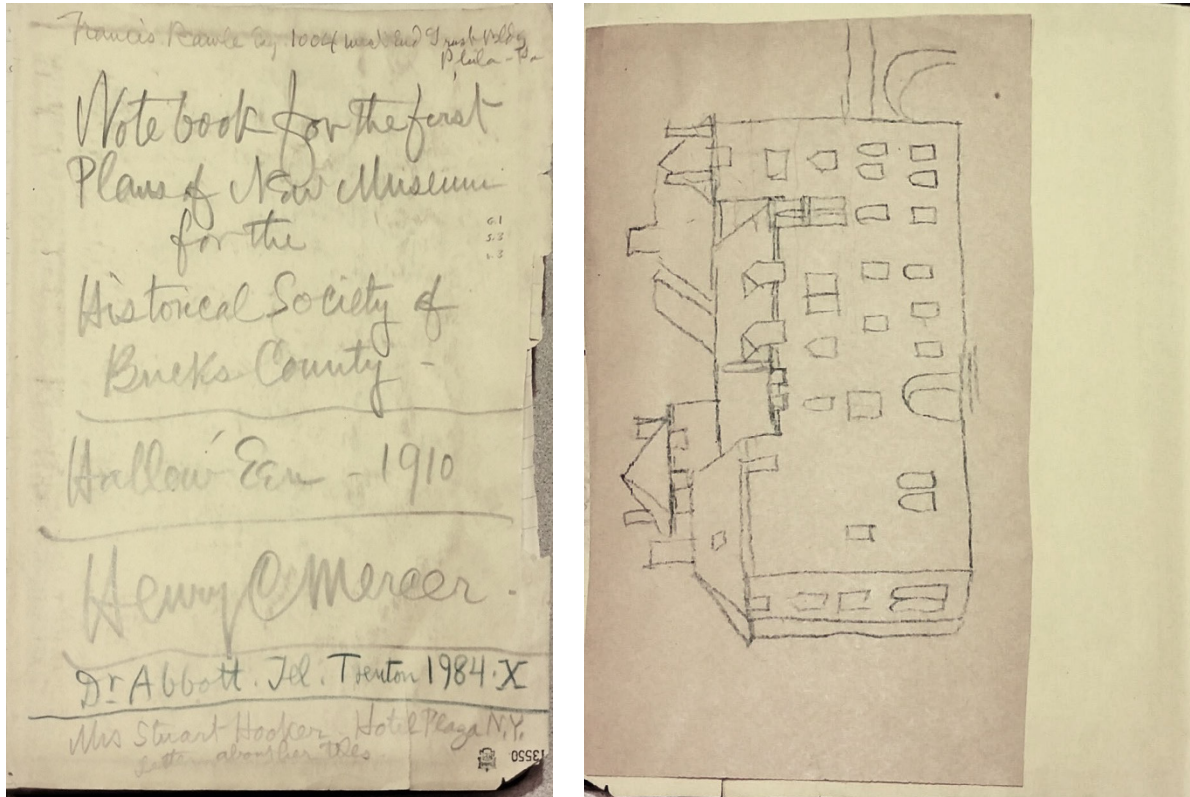 Francis Rawle Esq 1004 West End Trust Bldg
Phila - Pa
Note book for the first
Plans of New Museum
for the
Historical Society of
Bucks County -
Hallow'Een - 1910
Henry C Mercer.
Dr Abbott. Tel. Trenton 1984.X
Mrs Stuart Hooker Hotel Plaza N.Y.
letter about her tiles
13550